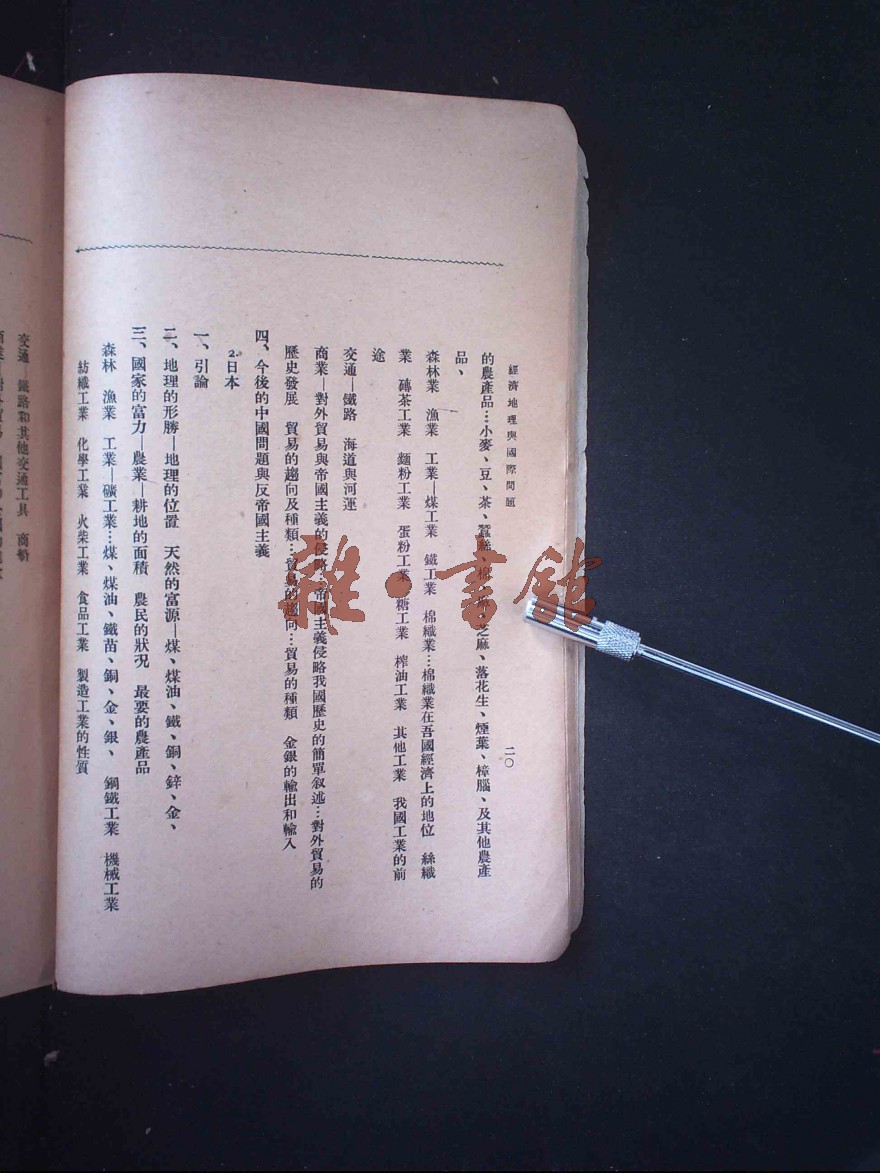 經濟地理與國際問題
二〇
的農產品…小麥、豆、茶、蠶絲、棉、麻、芝麻、落花生、煙葉、樟腦、及其他農產
品、
森林業 漁業 工業—煤工業 鐵工業 棉織業…棉織業在吾國經濟上的地位 絲織
業 磚茶工業 麵粉工業 蛋粉工業 糖工業 榨油工業 其他工業 我國工業的前
途
交通—鐵路 海道與河運
商業—對外貿易與帝國主義的侵略…帝國主義侵略我國歷史的簡單叙述…對外貿易的
歷史發展 貿易的趨向及種類…貿易的趨向…貿易的種類 金銀的輸出和輸入
四、今後的中國問題與反帝國主義
2.日本
一、引論
二、地理的形勝—地理的位置 天然的富源—煤、煤油、鐵、銅、鋅、金、
三、國家的富力—農業—耕地的面積 農民的狀況 最要的農產品
森林 漁業 工業—礦工業…煤、煤油、鐵苗、銅、金、銀、 鋼鐵工業 機械工業
紡織工業 化學工業 火柴工業 食品工業 製造工業的性質
交通—鐵路和其他交通工具 商船
雜·書館